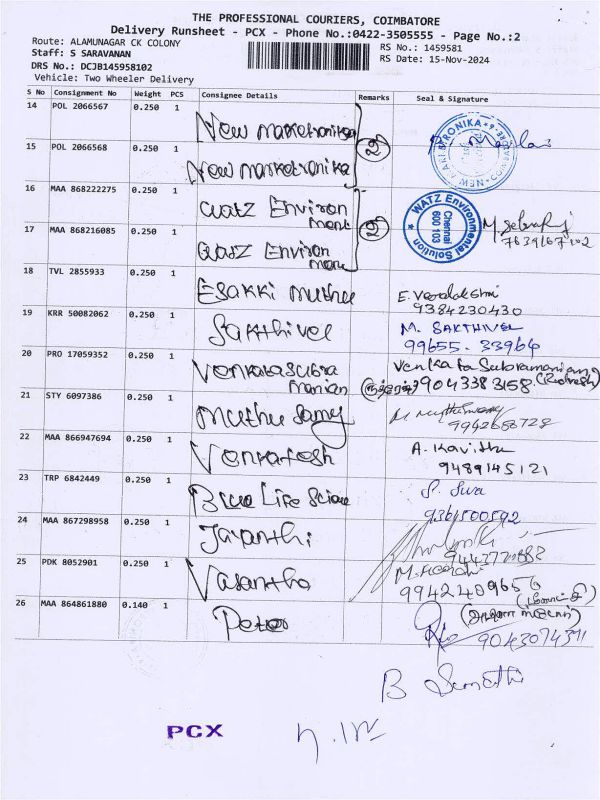 THE PROFESSIONAL COURIERS, COIMBATORE
Delivery Runsheet - PCX - Phone No.:0422-3505555 - Page No.:2
Route: ALAMUNAGAR CK COLONY
Staff: S SARAVANAN
DRS No.: DCJB145958102
Vehicle: Two Wheeler Delivery
RS No.: 1459581
RS Date: 15-Nov-2024
S No Consignment No Weight PCS Consignee Details Remarks Seal & Signature
14 POL 2066567 0.250 1 New marketronika
15 POL 2066568 0.250 1 New marketronika
16 MAA 868222275 0.250 1 watz Environ
WATZ Environmental Solution
Chennai
600 103
17 MAA 868216085 0.250 1 watz Environ
18 TVL 2855933 0.250 1 Esakki muthu
9384230430
19 KRR 50082062 0.250 1 Sakthivel M. SAKTHIVEL
99655. 33964
20 PRO 17059352 0.250 1 Venkatasubra
manian
9043383158
21 STY 6097386 0.250 1 Muthu Samy
22 MAA 866947694 0.250 1 Venkatesh A. Kavitha
9489145121
23 TRP 6842449 0.250 1 Blue Life Science S. Siva
24 MAA 867298958 0.250 1 Jaianthi
25 PDK 8052901 0.250 1 Vasantha
26 MAA 864861880 0.140 1 Peter
PCX